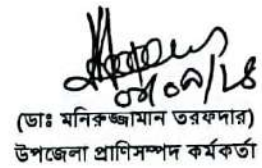 (ডাঃ মনিরুজ্জামান তরফদার)
উপজেলা প্রাণিসম্পদ কর্মকর্তা